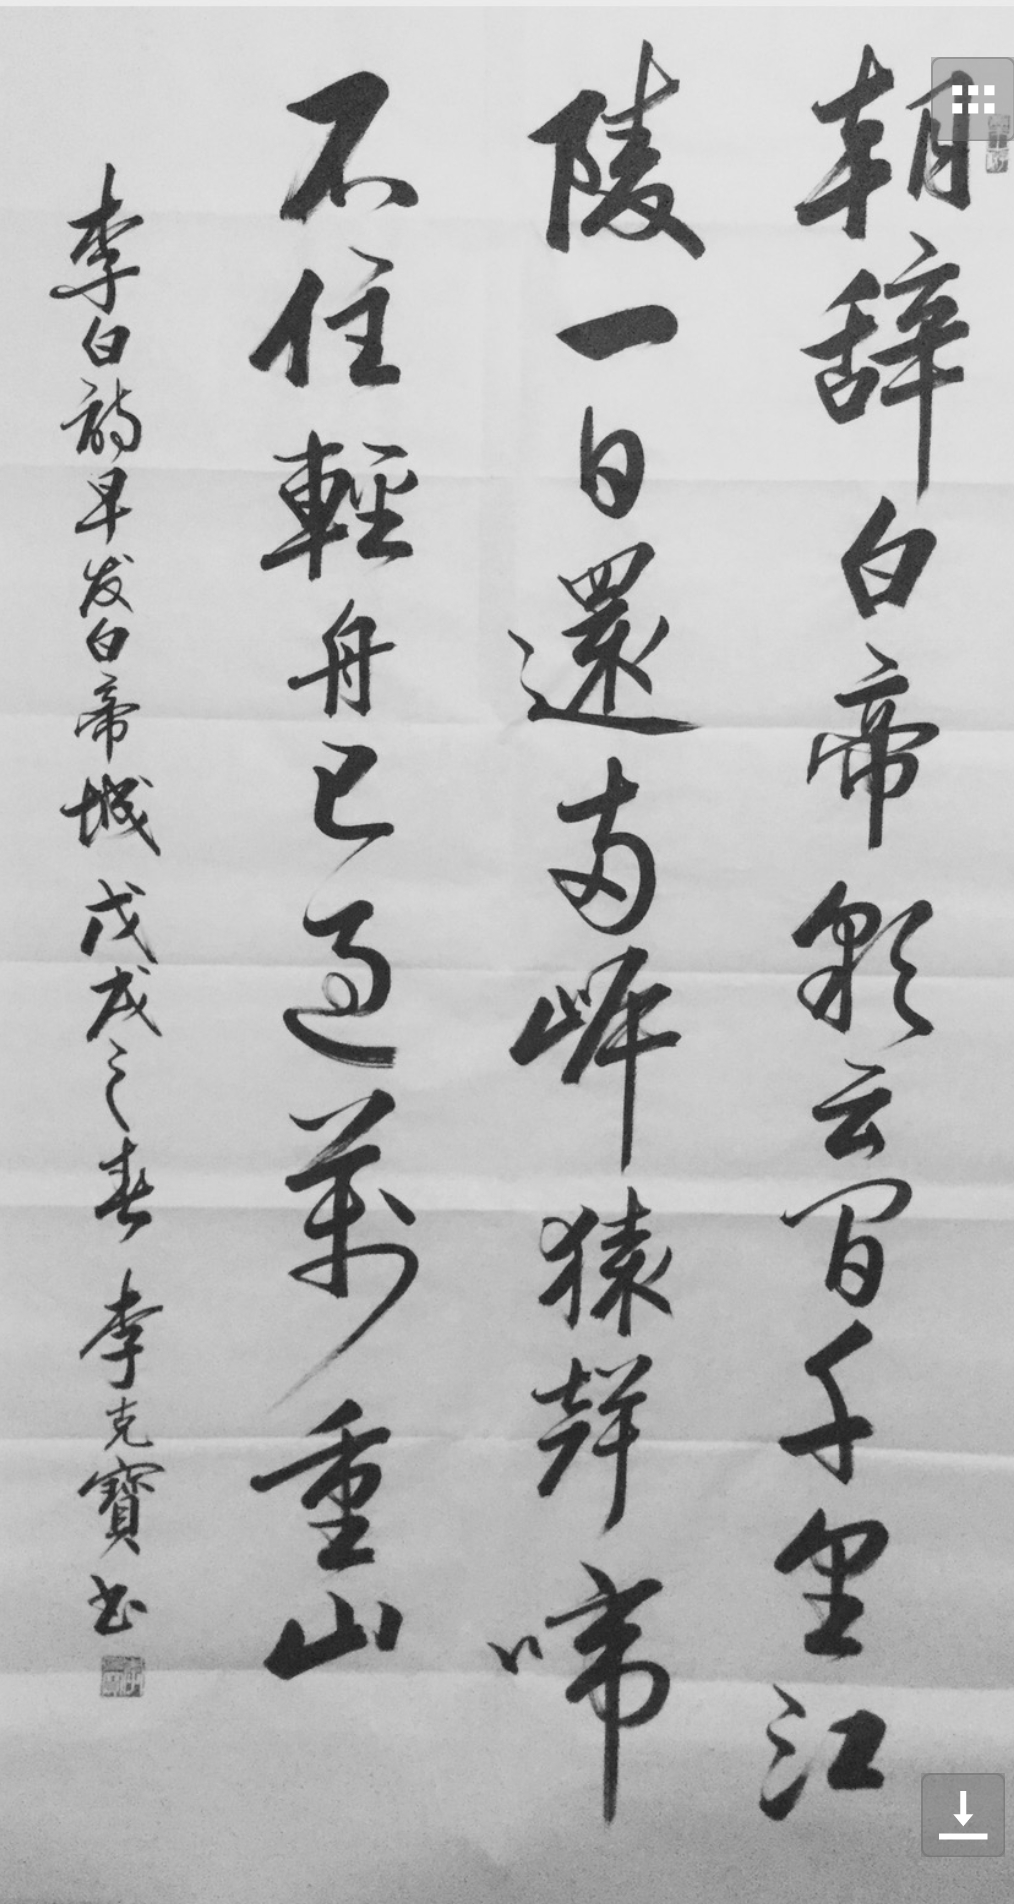 朝辞白帝彩云间千里江
陵一日還两岸猿聲啼
不住輕舟已过萬重山
李白诗早发白帝城 戊戌之春 李克寶书